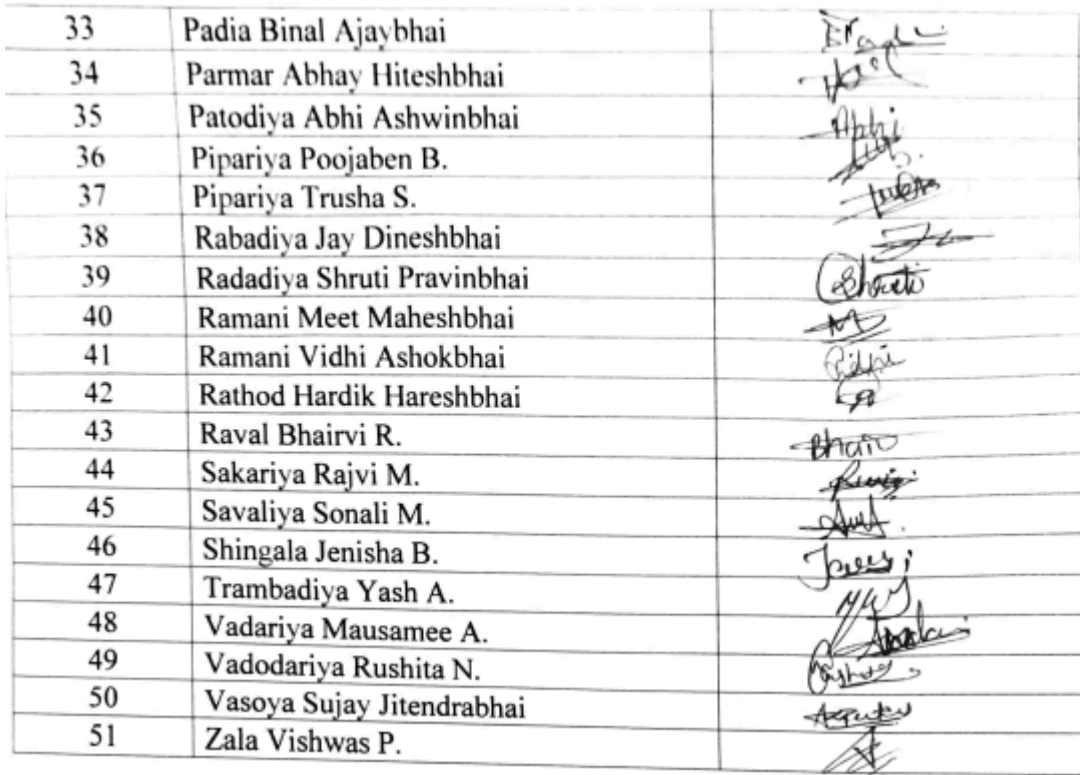 33 Padia Binal Ajaybhai
34 Parmar Abhay Hiteshbhai
35 Patodiya Abhi Ashwinbhai Abhi
36 Pipariya Poojaben B.
37 Pipariya Trusha S.
38 Rabadiya Jay Dineshbhai
39 Radadiya Shruti Pravinbhai Shruti
40 Ramani Meet Maheshbhai
41 Ramani Vidhi Ashokbhai
42 Rathod Hardik Hareshbhai
43 Raval Bhairvi R.
44 Sakariya Rajvi M.
45 Savaliya Sonali M.
46 Shingala Jenisha B.
47 Trambadiya Yash A.
48 Vadariya Mausamee A.
49 Vadodariya Rushita N.
50 Vasoya Sujay Jitendrabhai
51 Zala Vishwas P.